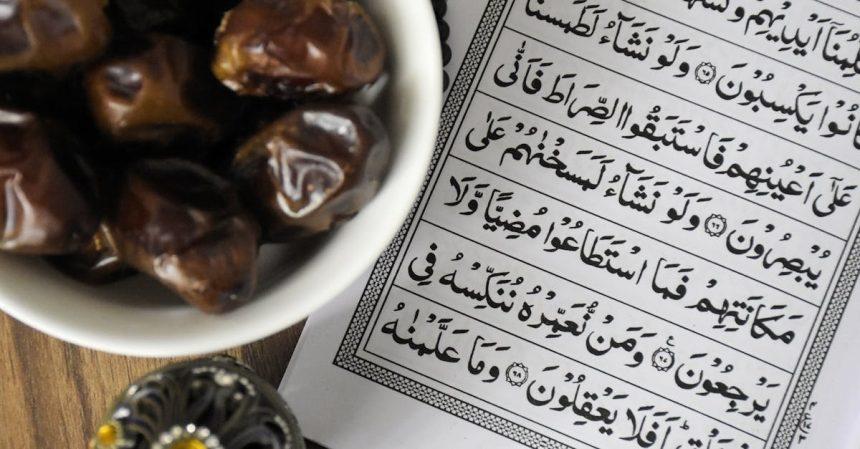 اَيْدِيْهِمْ
يَكْسِبُوْنَ ۝۶۵ وَلَوْ نَشَآءُ لَطَمَسْنَا
عَلٰٓى اَعْيُنِهِمْ فَاسْتَبَقُوا الصِّرَاطَ فَاَنّٰى
يُبْصِرُوْنَ ۝۶۶ وَلَوْ نَشَآءُ لَمَسَخْنٰهُمْ عَلٰى
مَكَانَتِهِمْ فَمَا اسْتَطَاعُوْا مُضِيًّا وَّلَا
يَرْجِعُوْنَ ۝۶۷ وَمَنْ نُّعَمِّرْهُ نُنَكِّسْهُ فِى
اَفَلَا يَعْقِلُوْنَ ۝۶۸ وَمَا عَلَّمْنٰهُ